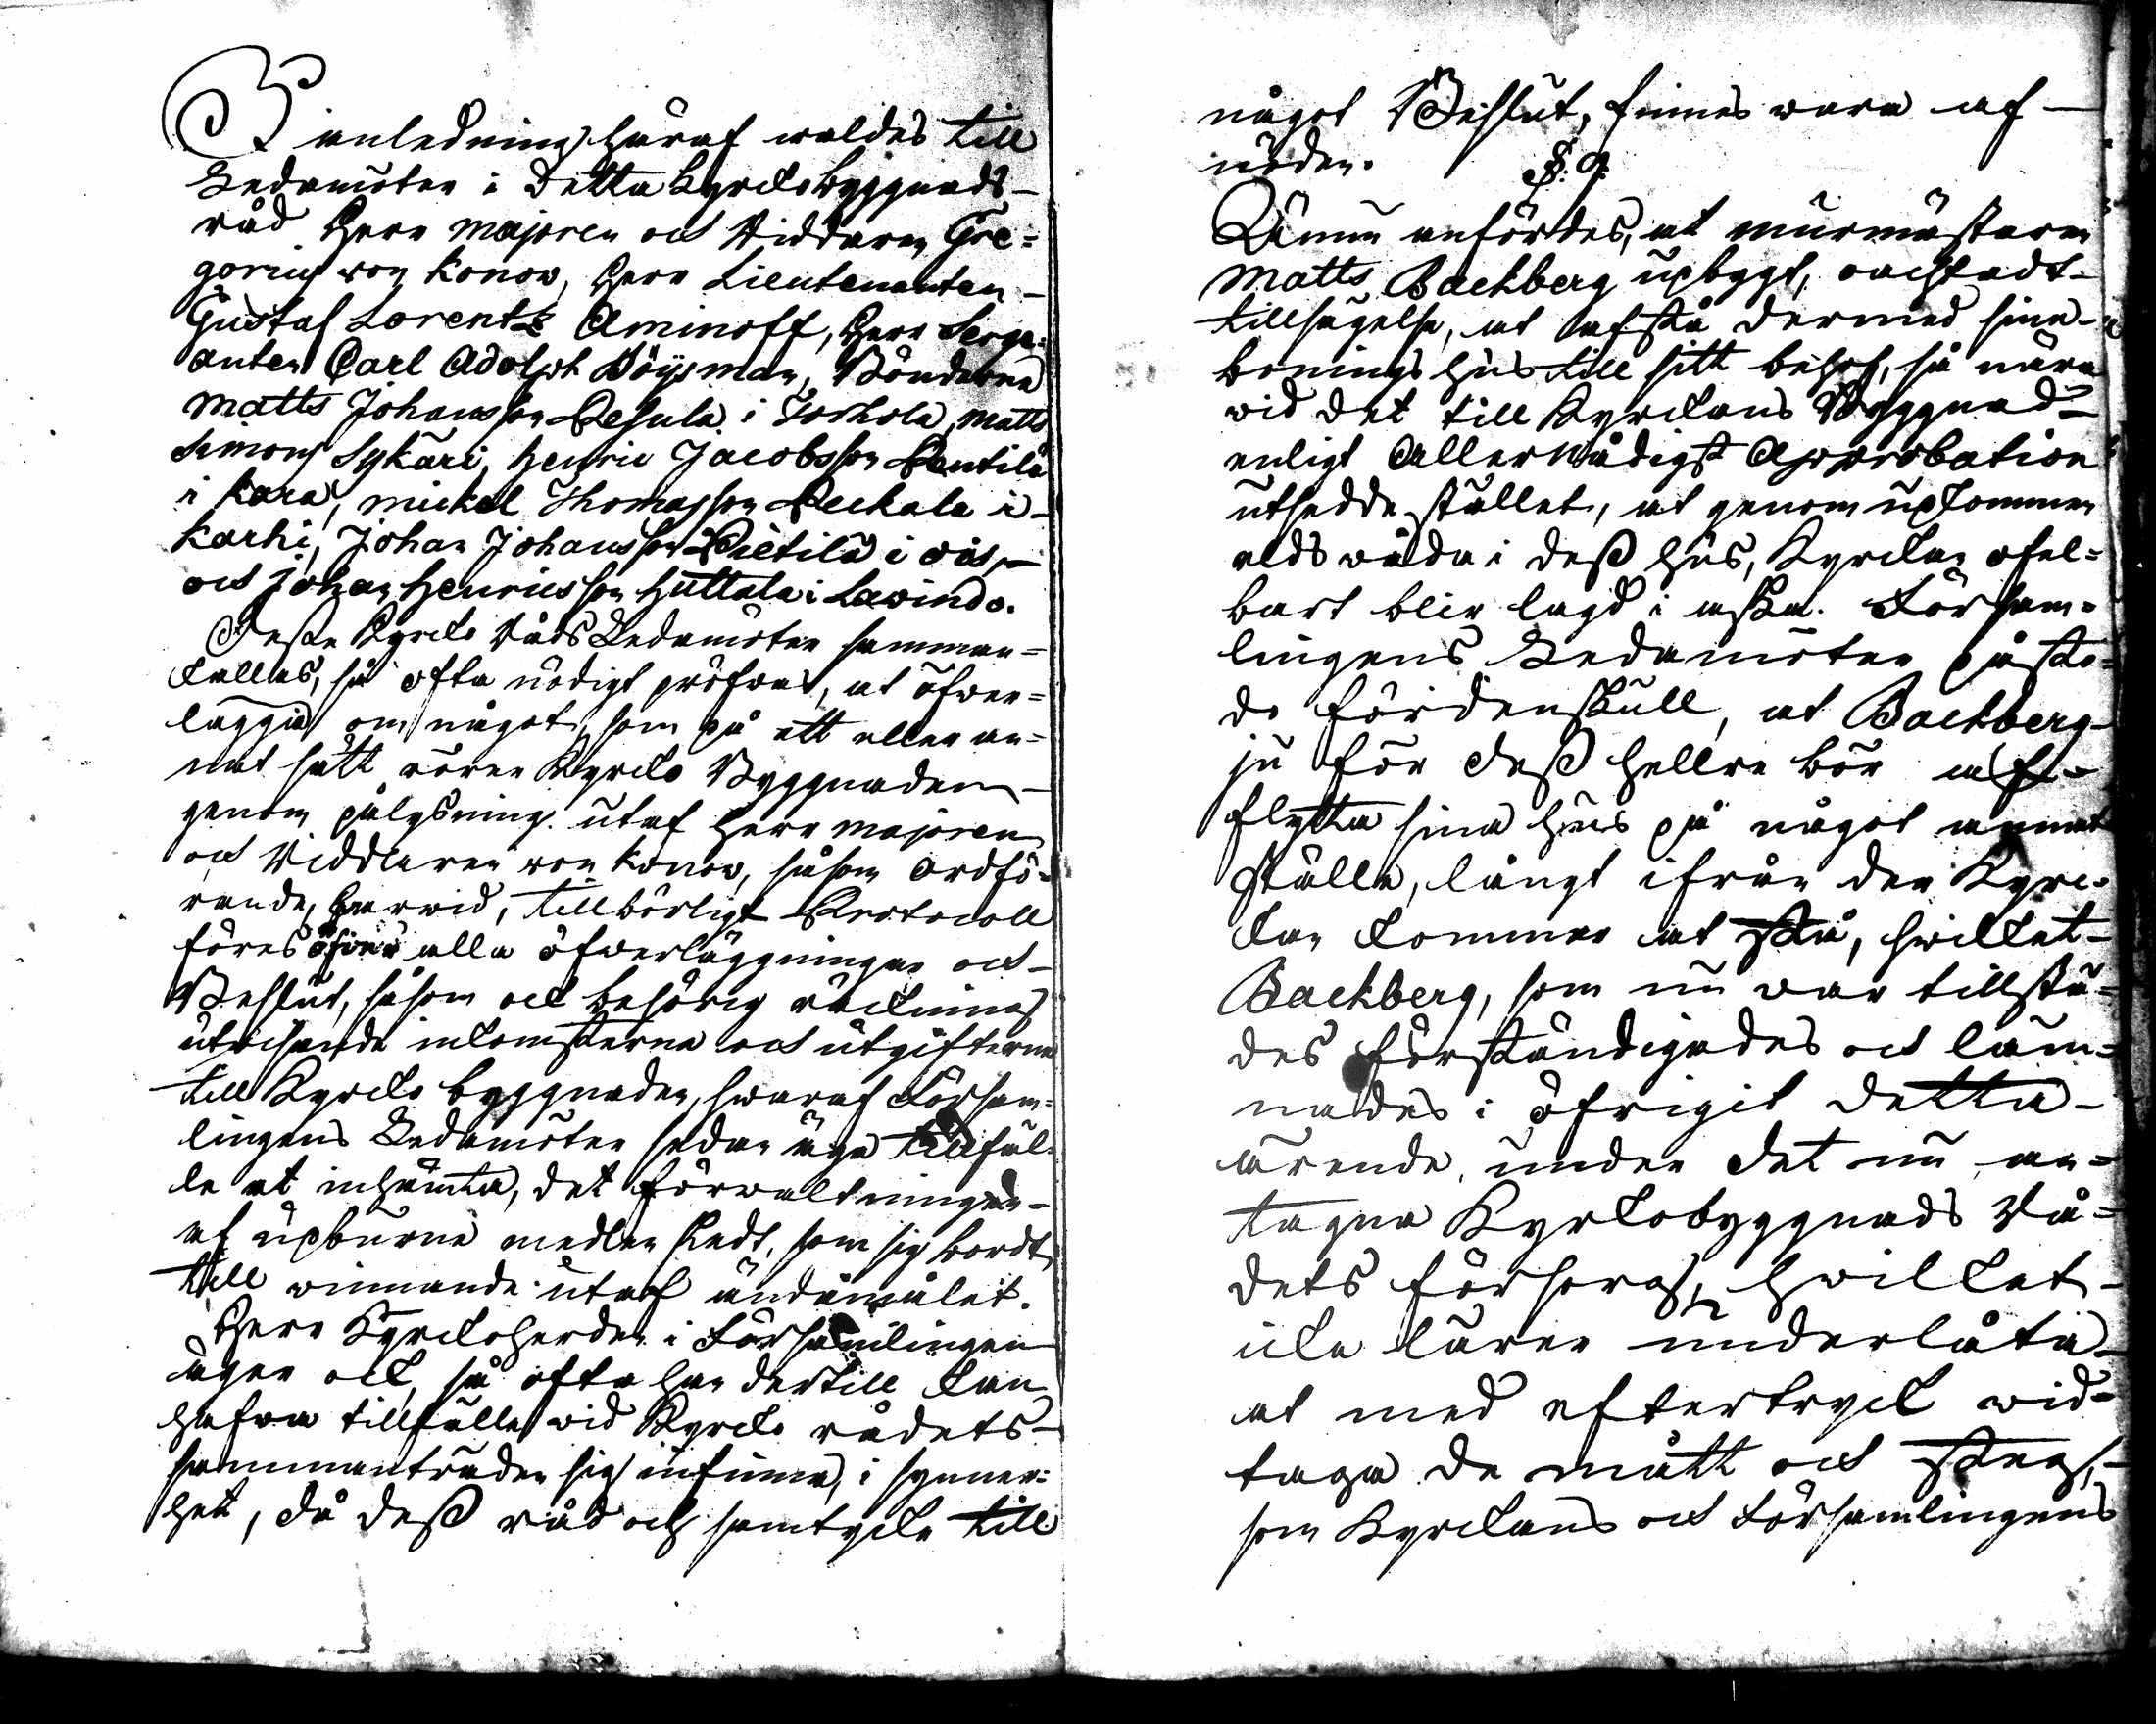 I anledning häraf waldes till
Ledamöter i detta Kyrckobyggnads-
råd Herr Majoren och Riddaren Gre=
gorius von Konow, Herr Lieutenanten -
Gustaf Lorentz Aminoff, Herr Serge=
anten Carl Adolph Böijsman, Bönderne
Matts Johansson Lesula i Torhola, Matts
Simons Sykäri, Henric Jacobsson Pentilä
i Kara, Mickel Thomasson Peckala i -
Karhi, Johan Johansson Pietilä i Ois, -
och Johan Henricsson Huttala i Lawindo.
Desse Kyrcko Råds Ledamöter samman=
kallas, så ofta nödigt pröfwas, at öfwer=
läggia om något, som på ett eller an=
nat sätt rörer Kyrcko Byggnaden -
genom pålysning utaf Herr Majoren
och Riddaren von Konow, såsom Ordfö=
rande, hwarwid, tillbörligt Protocoll
föres öfwer alla öfwerläggningar och -
Beslut, såsom ock behörig räckning
utwisande inkomsterne och utgifterne
till Kyrcko byggnaden, hwaraf Försam=
lingens Ledamöter sedan äga tillfäl=
le at inhämta, det förwaltningen -
af upburne medlen skedt, som sig bordt,
till winnande utaf ändamålet.
Herr Kyrckoherden i Församlingen
äger ock, så ofta han dertill kan
hafwa tillfälle wid Kyrcko rådets -
sammanträden sig infinna, i synner=
het, då dess råd och samtycke till
något Beslut, finnes wara af -
nöden.
§: 9.
Lämm anfördes, at murmästaren
Matts Backberg upbygt, oachtadt -
tillsägelse, at afstå dermed sina -
bonings hus till sitt behof, så nära
wid det till Kyrckans Byggnad -
enligt Allernådigst Approbation
utsedde stället, at genom upkommen
elds wåda i dess hus, Kyrckan ofel=
bart blir lagd i aska. Försam=
lingens Ledamöter påsto=
do fördenskull, at Backberg
ju för dess hellre bör af -
flytta sina hus på något annat
ställe, långt ifrån der Kyrc=
kan kommer at stå, hwilket -
Backberg, som nu war tillstä=
des förständigades och läm=
nades i öfrigit detta -
ärende, under det nu an=
tagna Kyrckobyggnads Rå=
dets försorg, hwilket -
icke lärer underlåta
at med eftertryck wid=
taga de mått och steg, -
som Kyrckans och Församlingens